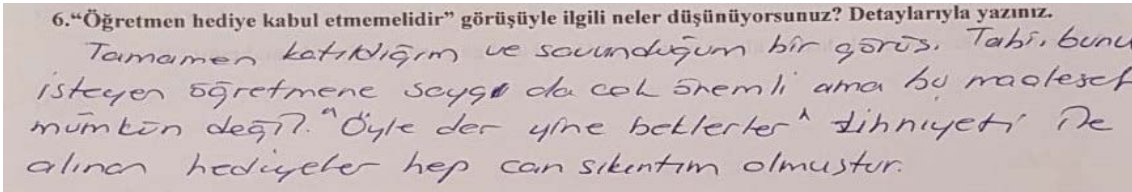 6.“Öğretmen hediye kabul etmemelidir” görüşüyle ilgili neler düşünüyorsunuz? Detaylarıyla yazınız.
Tamamen katıldığım ve savunduğum bir görüş. Tabi, bunu
isteyen öğretmene saygı da çok önemli ama bu maalesef
mümkün değil. "Öyle der yine beklerler" zihniyeti ile
alınan hediyeler hep can sıkıntım olmuştur.